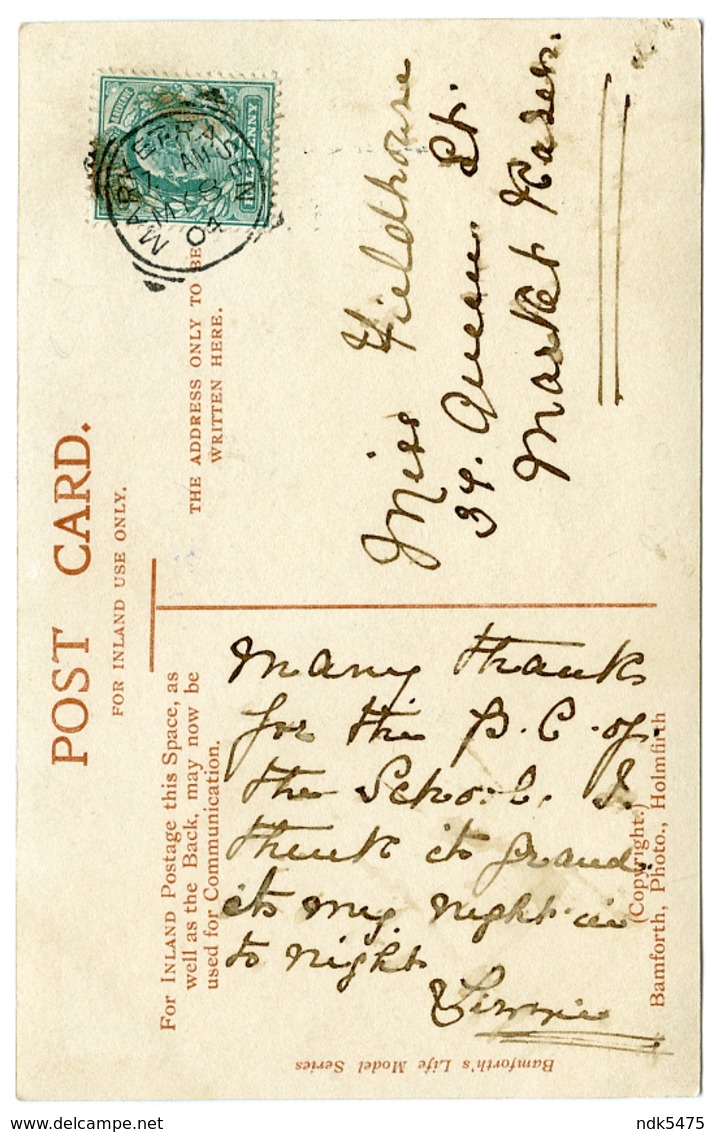 POST CARD.
FOR INLAND USE ONLY.
For INLAND Postage this Space, as
well as the Back, may now be
used for Communication.
THE ADDRESS ONLY TO BE
WRITTEN HERE.
MARKET RASEN
AM
MY 9
04
Many thanks
for the P.C. of
the School. I
think its grand.
its my night in
to night
Miss Fieldhouse
34. Queen St.
Market Rasen.
(Copyright.)
Bamforth, Photo., Holmfirth
Bamforth's Life Model Series
ndk5475